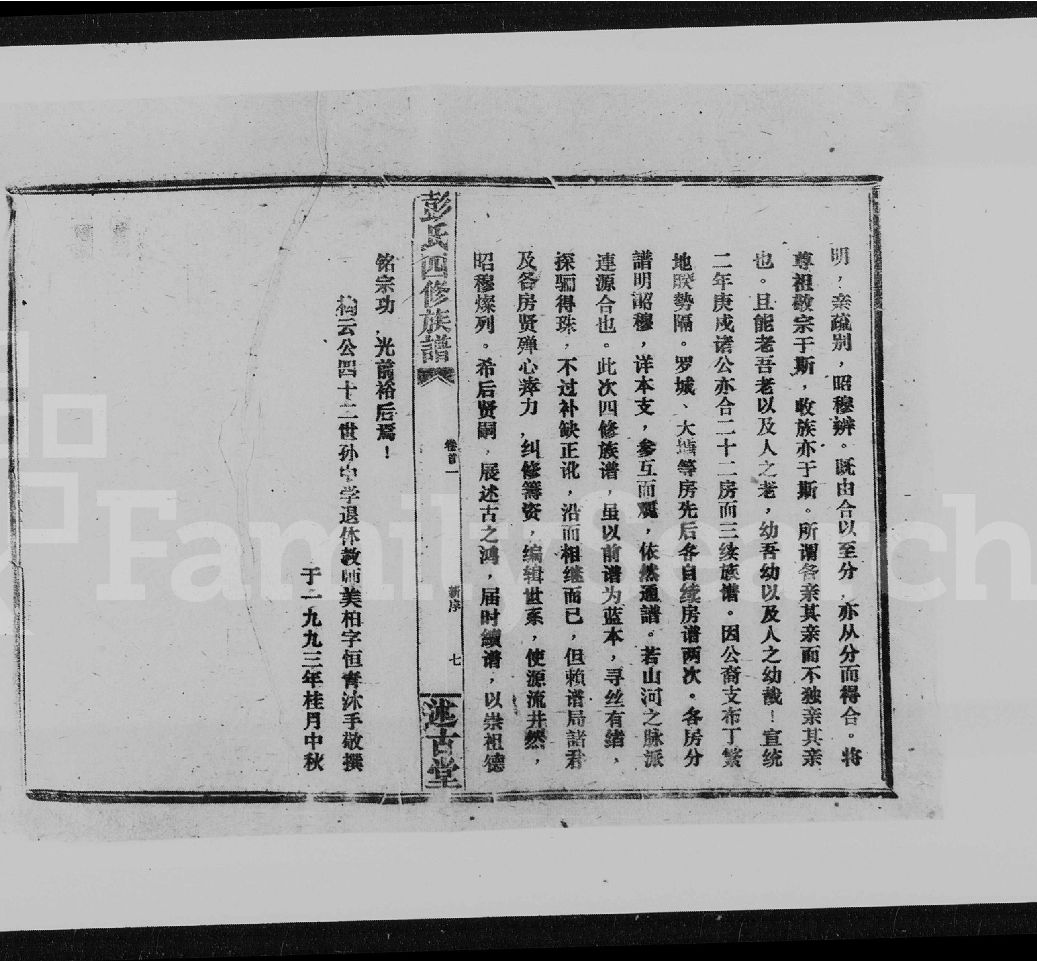 明，亲疏别，昭穆辨。既由合以至分，亦从分而得合。将
尊祖敬宗于斯，收族亦于斯。所谓各亲其亲而不独亲其亲
也。且能老吾老以及人之老，幼吾幼以及人之幼哉！宣统
二年庚戍诸公亦合二十二房而三续族谱。因公裔支布丁繁
地睽势隔。罗城、大塘等房先后各自续房谱两次。各房分
譜明詔穆，详本支，参互而观，依然通譜。若山河之脉派
連源合也。此次四修族谱，虽以前谱为蓝本，寻丝有绪，
探骊得珠，不过补缺正讹，沿而相继而已，但赖谱局諸君
及各房贤殚心瘁力，纠修筹资，编辑世系，使源流井然，
昭穆燦列。希后贤嗣，展述古之鸿，届时續谱，以崇祖德
彭氏四修族譜
卷首一
新序
七
述古堂
铭宗功，光前裕后焉！
构云公四十二世孙中学退休教师美柏字恒青沐手敬撰
于一九九三年桂月中秋
FamilySearch